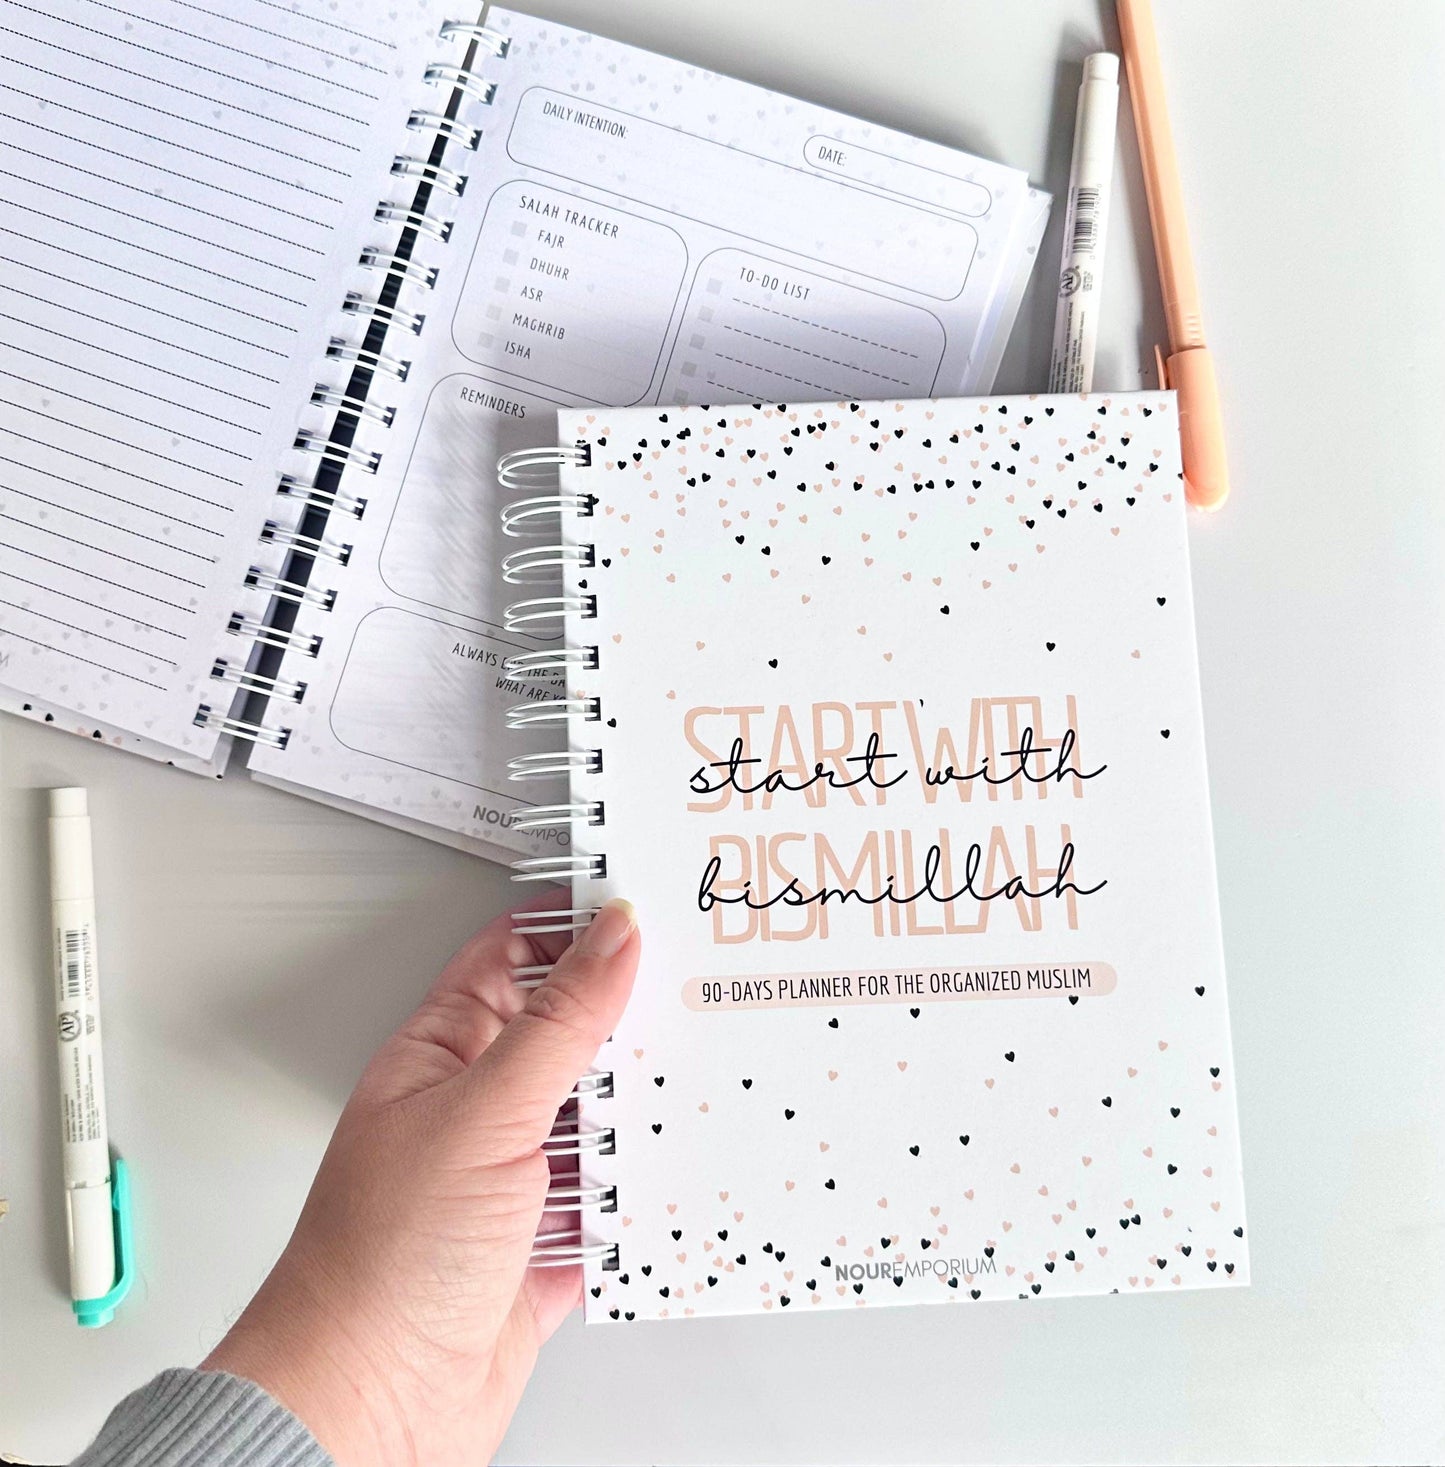 DAILY INTENTION:
DATE:
SALAH TRACKER
FAJR
DHUHR
ASR
MAGHRIB
ISHA
TO-DO LIST
REMINDERS
ALWAYS END THE
WHAT ARE
NOUREMPO
START WITH
start with
BISMILLAH
bismillah
90-DAYS PLANNER FOR THE ORGANIZED MUSLIM
NOUREMPORIUM
AP
AP